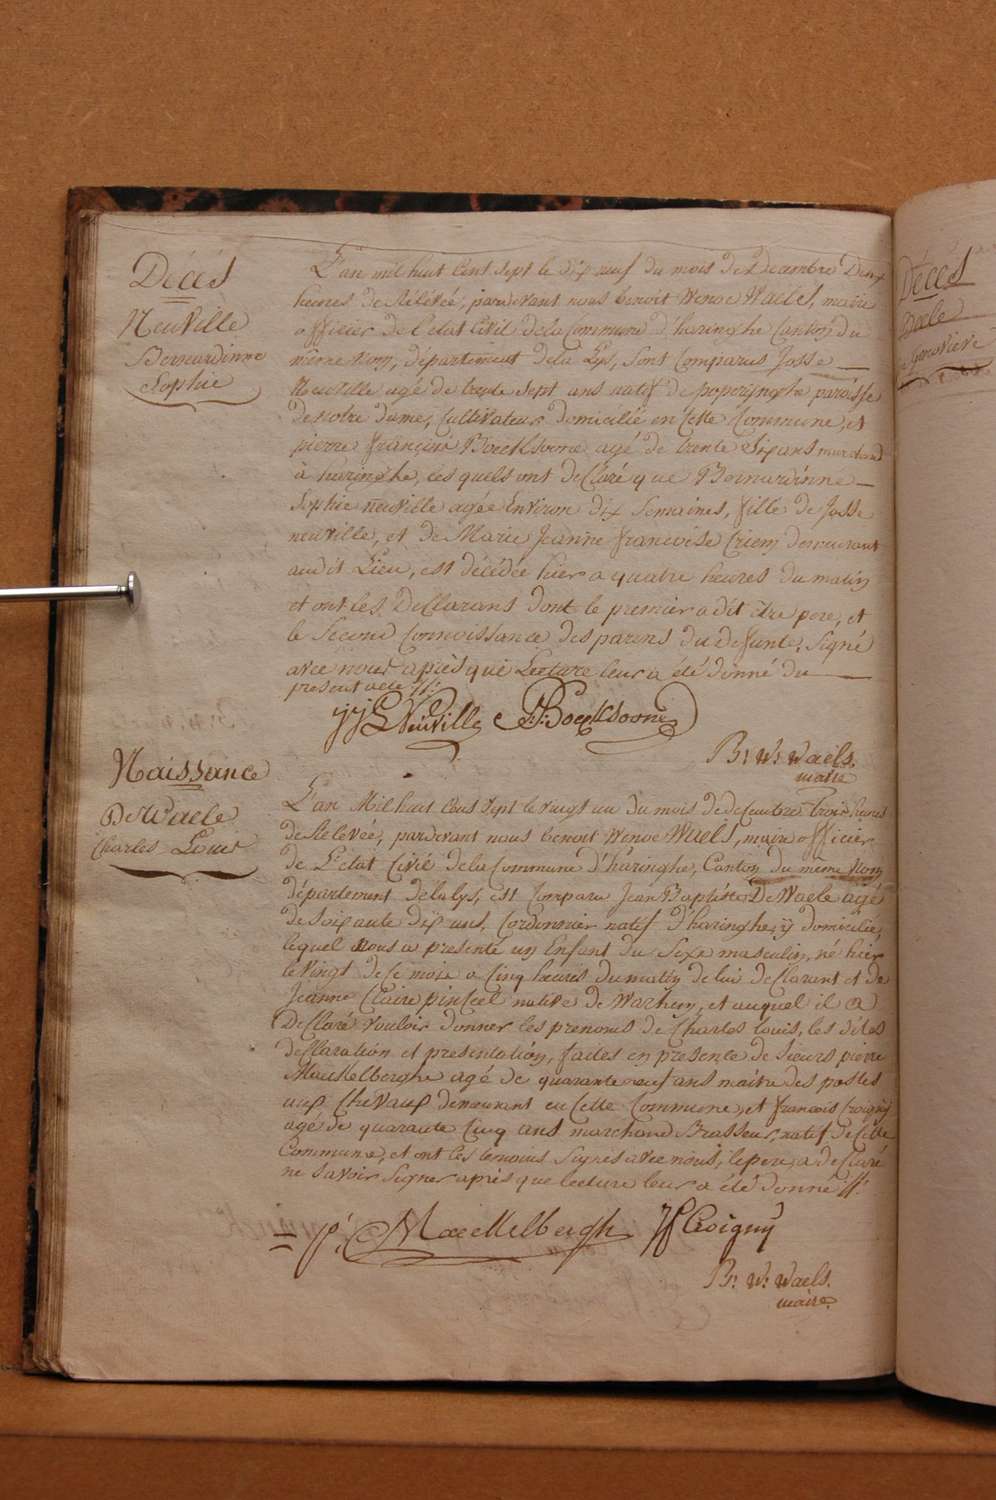 Décés
Neuville
Bernardinne
Sophie
L'an mil huit cent sept le dix neuf du mois de Decembre Deux
heures de Relevée, pardevant nous benoit Wenoc Waels, maire
officier de l'etat Civil de la Commune d'haringhe Canton du
même nom, département de la Lys, sont Comparus Josse
Neuville agé de trente sept ans natif de poperinghe paroisse
de notre dame, Cultivateur domicilié en Cette Commune, et
pierre françois Boecksoone agé de trente Six ans marchand
à haringhe, les quels ont declaré que Bernardinne
Sophie neuville agée Environ dix Semaines, fille de Josse
neuville, et de Marie Jeanne francoise Criem demeurant
audit Lieu, est décédée hier a quatre heures du matin
et ont les Declarans dont le premier a dit être pere, et
le Second Connoissance des parens du defunte, Signé
avec nous après que Lecture leur a été donné du
present acte //:
jj Neuville P: f: Boecksoone
B: W: Waels.
maire
Naissance
De Waele
Charles Louis
L'an Mil huit Cens sept le vingt un du mois de decembre trois heures
de Relevée, pardevant nous benoit Wenoc Waels, maire officier
de L'état Civil de la Commune d'haringhe, Canton du même Nom
département de la lys, est Comparu Jean Baptiste De Waele agé
de Soixante dix ans, Cordonnier natif d'haringhe, y domicilié,
lequel Nous a presenté un Enfant du Sexe masculin, né hier
le vingt de Ce mois a Cinq heures du matin de lui declarant et de
Jeanne Claire pinseel native de Warhem, et auquel il a
Declaré vouloir donner les prenoms de Charles Louis, les dites
declaration et presentation, faites en presence de Sieurs pierre
Maeckelberghe agé de quarante neuf ans maitre des postes
aux Chevaux demeurant en Cette Commune, et francois Croigny
agé de quarante Cinq ans marchand Brasseur natif de Cette
Commune, et ont les temoins Signés avec nous, le pere a declaré
ne Savoir Signer après que lecture leur a été donné //:
P: Maeckelbergh JF Croigny
B: W: Waels.
maire.
Décés
Daele
Genovieve